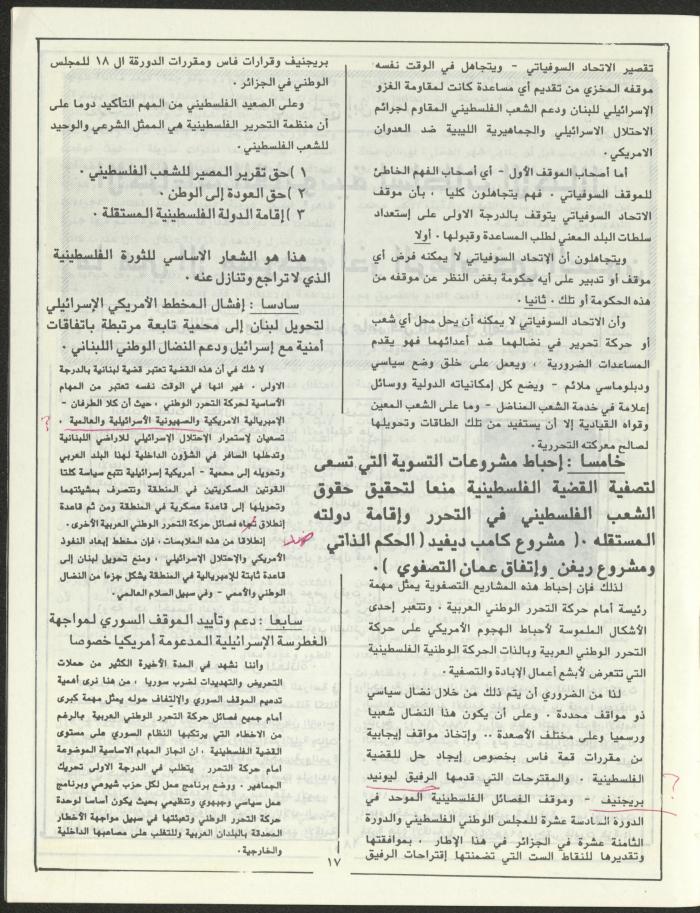 تقصير الاتحاد السوفياتي - ويتجاهل في الوقت نفسه
موقفه المخزي من تقديم أي مساعدة كانت لمقاومة الغزو
الإسرائيلي للبنان ودعم الشعب الفلسطيني المقاوم لجرائم
الاحتلال الاسرائيلي والجماهيرية الليبية ضد العدوان
الامريكي .
أما أصحاب الموقف الأول - أي أصحاب الفهم الخاطئ
للموقف السوفياتي . فهم يتجاهلون كليا ، بأن موقف
الاتحاد السوفياتي يتوقف بالدرجة الاولى على إستعداد
سلطات البلد المعني لطلب المساعدة وقبولها . أولا
ويتجاهلون أن الإتحاد السوفياتي لا يمكنه فرض أي
موقف أو تدبير على أيه حكومة بغض النظر عن موقفه من
هذه الحكومة أو تلك . ثانيا .
وأن الاتحاد السوفياتي لا يمكنه أن يحل محل أي شعب
أو حركة تحرير في نضالهما ضد أعدائهما فهو يقدم
المساعدات الضرورية ، ويعمل على خلق وضع سياسي
ودبلوماسي ملائم - ويضع كل إمكانياته الدولية ووسائل
إعلامة في خدمة الشعب المناضل - وما على الشعب المعين
وقواه القيادية إلا أن يستفيد من تلك الطاقات وتحويلها
لصالح معركته التحررية .
خامسا : إحباط مشروعات التسوية التي تسعى
لتصفية القضية الفلسطينية منعا لتحقيق حقوق
الشعب الفلسطيني في التحرر وإقامة دولته
المستقله .( مشروع كامب ديفيد ( الحكم الذاتي
ومشروع ريغن وإتفاق عمان التصفوي ) .
لذلك فإن إحباط هذه المشاريع التصفوية يمثل مهمة
رئيسة أمام حركة التحرر الوطني العربية . وتتعبر إحدى
الأشكال الملموسة لأحباط الهجوم الأمريكي على حركة
التحرر الوطني العربية وبالذات الحركة الوطنية الفلسطينية
التي تتعرض لأبشع أعمال الإبادة والتصفية .
لذا من الضروري أن يتم ذلك من خلال نضال سياسي
ذو مواقف محددة . وعلى أن يكون هذا النضال شعبيا
ورسميا وعلى مختلف الأصعدة .. وإتخاذ مواقف إيجابية
من مقررات قمة فاس بخصوص إيجاد حل للقضية
الفلسطينية . والمقترحات التي قدمها الرفيق ليونيد
بريجنيف - وموقف الفصائل الفلسطينية الموحد في
الدورة السادسة عشرة للمجلس الوطني الفلسطيني والدورة
الثامنة عشرة في الجزائر في هذا الإطار . بموافقتها
وتقديرها للنقاط الست التي تضمنتها إقتراحات الرفيق
بريجنيف وقرارات فاس ومقررات الدورقة ال ١٨ للمجلس
الوطني في الجزائر .
وعلى الصعيد الفلسطيني من المهم التأكيد دوما على
أن منظمة التحرير الفلسطينية هي الممثل الشرعي والوحيد
للشعب الفلسطيني .
١ )حق تقرير المصير للشعب الفلسطيني .
٢ )حق العودة إلى الوطن .
٣ )إقامة الدولة الفلسطينية المستقلة .
هذا هو الشعار الاساسي للثورة الفلسطينية
الذي لا تراجع وتنازل عنه .
سادسا : إفشال المخطط الأمريكي الإسرائيلي
لتحويل لبنان إلى محمية تابعة مرتبطة باتفاقات
أمنية مع إسرائيل ودعم النضال الوطني اللبناني .
لا شك في أن هذه القضية تعتبر قضية لبنانية بالدرجة
الاولى . غير انها في الوقت نفسه تعتبر من المهام
الأساسية لحركة التحرر الوطني ، حيث أن كلا الطرفان -
الإمبريالية الامريكية والصهيونية الأسرائيلية والعالمية .
؟
تسعيان لإستمرار الإحتلال الإسرائيلي للاراضي اللبنانية
وتدخلها السافر في الشؤون الداخلية لهذا البلد العربي
وتحويله إلى محمية - أمريكية إسرائيلية تتبع سياسة كلتا
القوتين العسكريتين في المنطقة وتتصرف بمشيئتهما
وتحويلها إلى قاعدة عسكرية في المنطقة ومن ثم قاعدة
إنطلاق تجاه فصائل حركة التحرر الوطني العربية الأخرى .
ضد
إنطلاقا من هذه الملابسات ، فإن مخطط إبعاد النفوذ
الأمريكي والإحتلال الإسرائيلي ، ومنع تحويل لبنان إلى
قاعدة ثابتة للإمبريالية في المنطقة يشكل جزءا من النضال
الوطني والأممي - وفي سبيل السلام العالمي .
سابعا : دعم وتأييد الموقف السوري لمواجهة
الغطرسة الإسرائيلية المدعومة أمريكيا خصوصا
وأننا نشهد في المدة الأخيرة الكثير من حملات
التحريض والتهديدات لضرب سوريا ، من هنا نرى أهمية
تدعيم الموقف السوري والإلتفاف حوله يمثل مهمة كبرى
أمام جميع فصائل حركة التحرر الوطني العربية بالرغم
من الاخطاء التي يرتكبها النظام السوري على مستوى
القضية الفلسطينية ، ان انجاز المهام الاساسية الموضوعة
امام حركة التحرر يتطلب في الدرجة الاولى تحريك
الجماهير . ووضع برنامج عمل لكل حزب شيوعي وبرنامج
عمل سياسي وجبهوي وتنظيمي بحيث يكون أساسا لوحدة
حركة التحرر الوطني وتعبئتها في سبيل مواجهة الأخطار
المحدقة بالبلدان العربية وللتغلب على مصاعبها الداخلية
والخارجية .
؟
١٧